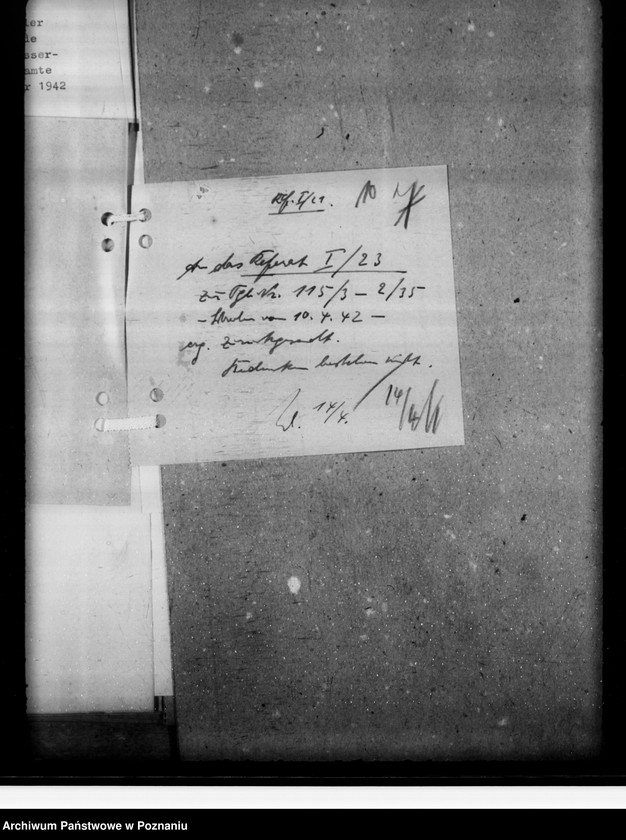 der
sser-
amte
r 1942
Ref. I/21.
10
An das Referat I/23
zu Tgb. Nr. 115/3 – 2/35
– Schreiben vom 10. 4. 42 –
erg. zurückgereicht.
Bedenken bestehen nicht.
14/4.
14/4
Archiwum Państwowe w Poznaniu